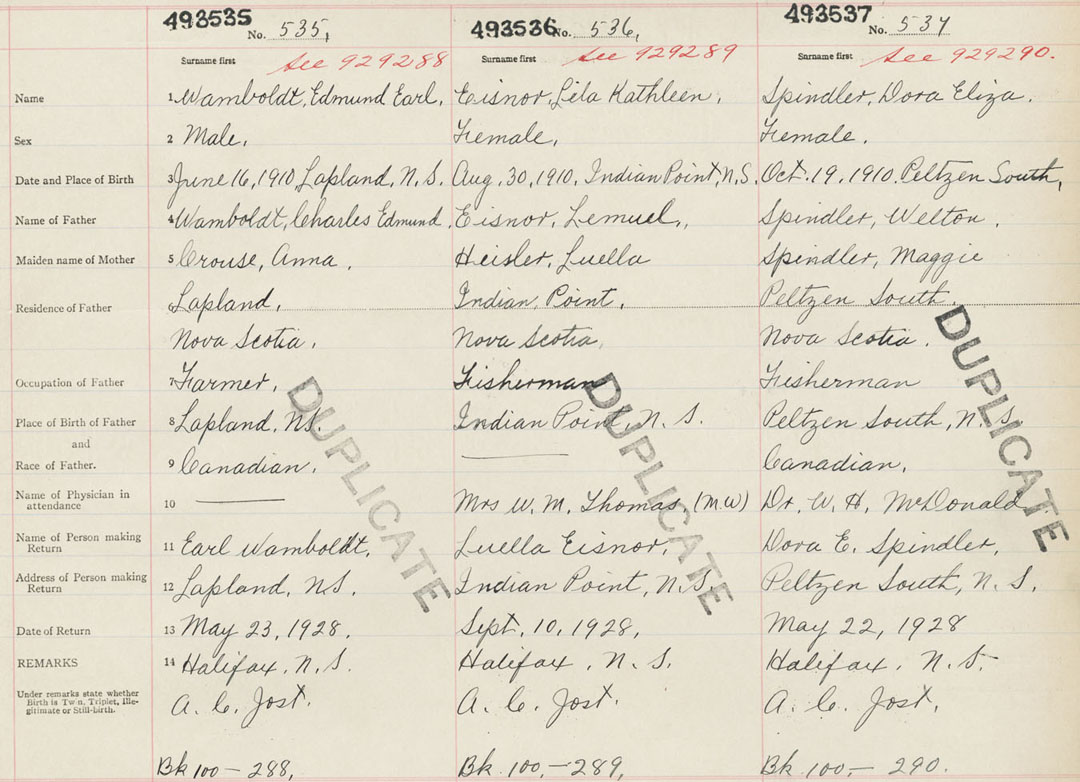 493535 493536 493537
No. 535, No. 536, No. 537
Surname first Surname first Surname first
See 929288 See 929289 See 929290.
Name 1 Wamboldt, Edmund Earl, Eisnor, Lila Kathleen, Spindler, Dora Eliza.
Sex 2 Male, Female, Female.
Date and Place of Birth 3 June 16, 1910 Lapland, N.S. Aug. 30, 1910, Indian Point, N.S. Oct. 19, 1910. Peltzen South,
Name of Father 4 Wamboldt, Charles Edmund. Eisnor, Lemuel, Spindler, Welton.
Maiden name of Mother 5 Crouse, Anna, Heisler, Luella Spindler, Maggie
Residence of Father 6 Lapland, Indian Point, Peltzen South.
Nova Scotia, Nova Scotia, Nova Scotia.
Occupation of Father 7 Farmer, Fisherman Fisherman
Place of Birth of Father 8 Lapland, NS. Indian Point, N. S. Peltzen South, N. S,
and
Race of Father. 9 Canadian. Canadian,
Name of Physician in attendance 10 Mrs W. M. Thomas, (M.W) Dr. W. H. McDonald
Name of Person making Return 11 Earl Wamboldt, Luella Eisnor, Dora E. Spindler,
Address of Person making Return 12 Lapland, N.S. Indian Point, N.S. Peltzen South, N. S.
Date of Return 13 May 23, 1928, Sept. 10, 1928, May 22, 1928
REMARKS 14 Halifax, N. S. Halifax, N. S. Halifax, N. S.
Under remarks state whether Birth is Twin, Triplet, Illegitimate or Still-birth. A. C. Jost. A. C. Jost. A. C. Jost,
Bk 100 - 288, Bk. 100, - 289, Bk. 100, - 290.
DUPLICATE
DUPLICATE
DUPLICATE